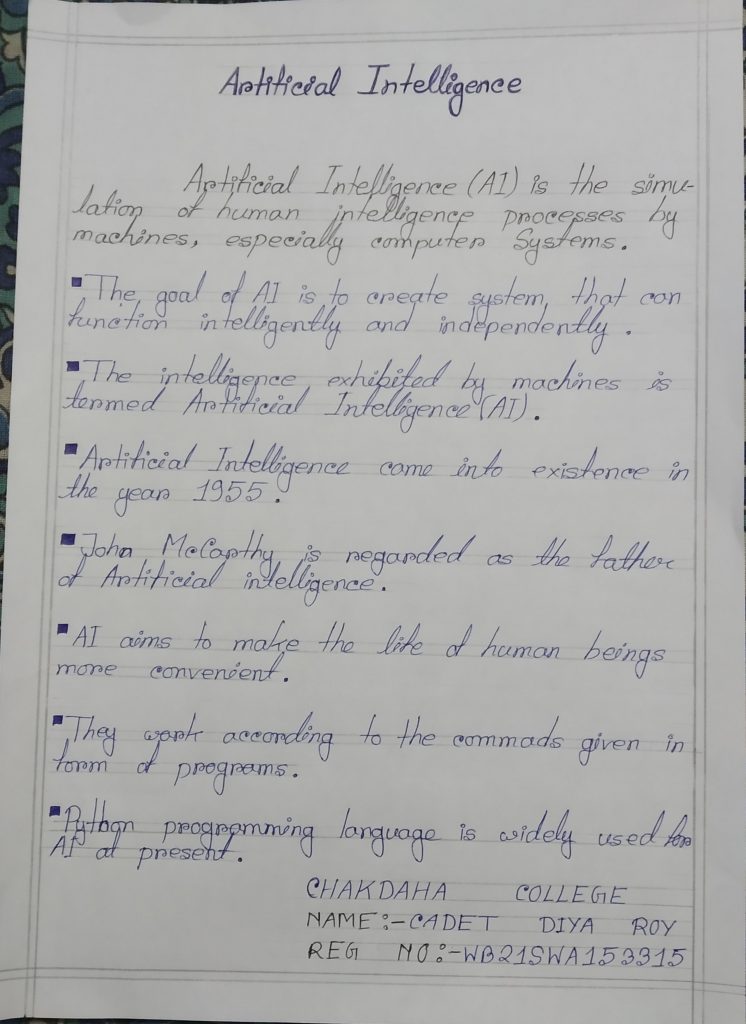 Artificial Intelligence
Artificial Intelligence (AI) is the simu-
lation of human intelligence processes by
machines, especially computer Systems.
▪The goal of AI is to create system, that can
function intelligently and independently.
▪The intelligence exhibited by machines is
termed Artificial Intelligence (AI).
▪Artificial Intelligence came into existence in
the year 1955.
▪John McCarthy is regarded as the father
of Artificial intelligence.
▪AI aims to make the life of human beings
more convenient.
▪They work according to the commads given in
form of programs.
▪Python programming language is widely used for
AI at present.
CHAKDAHA COLLEGE
NAME:-CADET DIYA ROY
REG NO:-WB21SWA153315